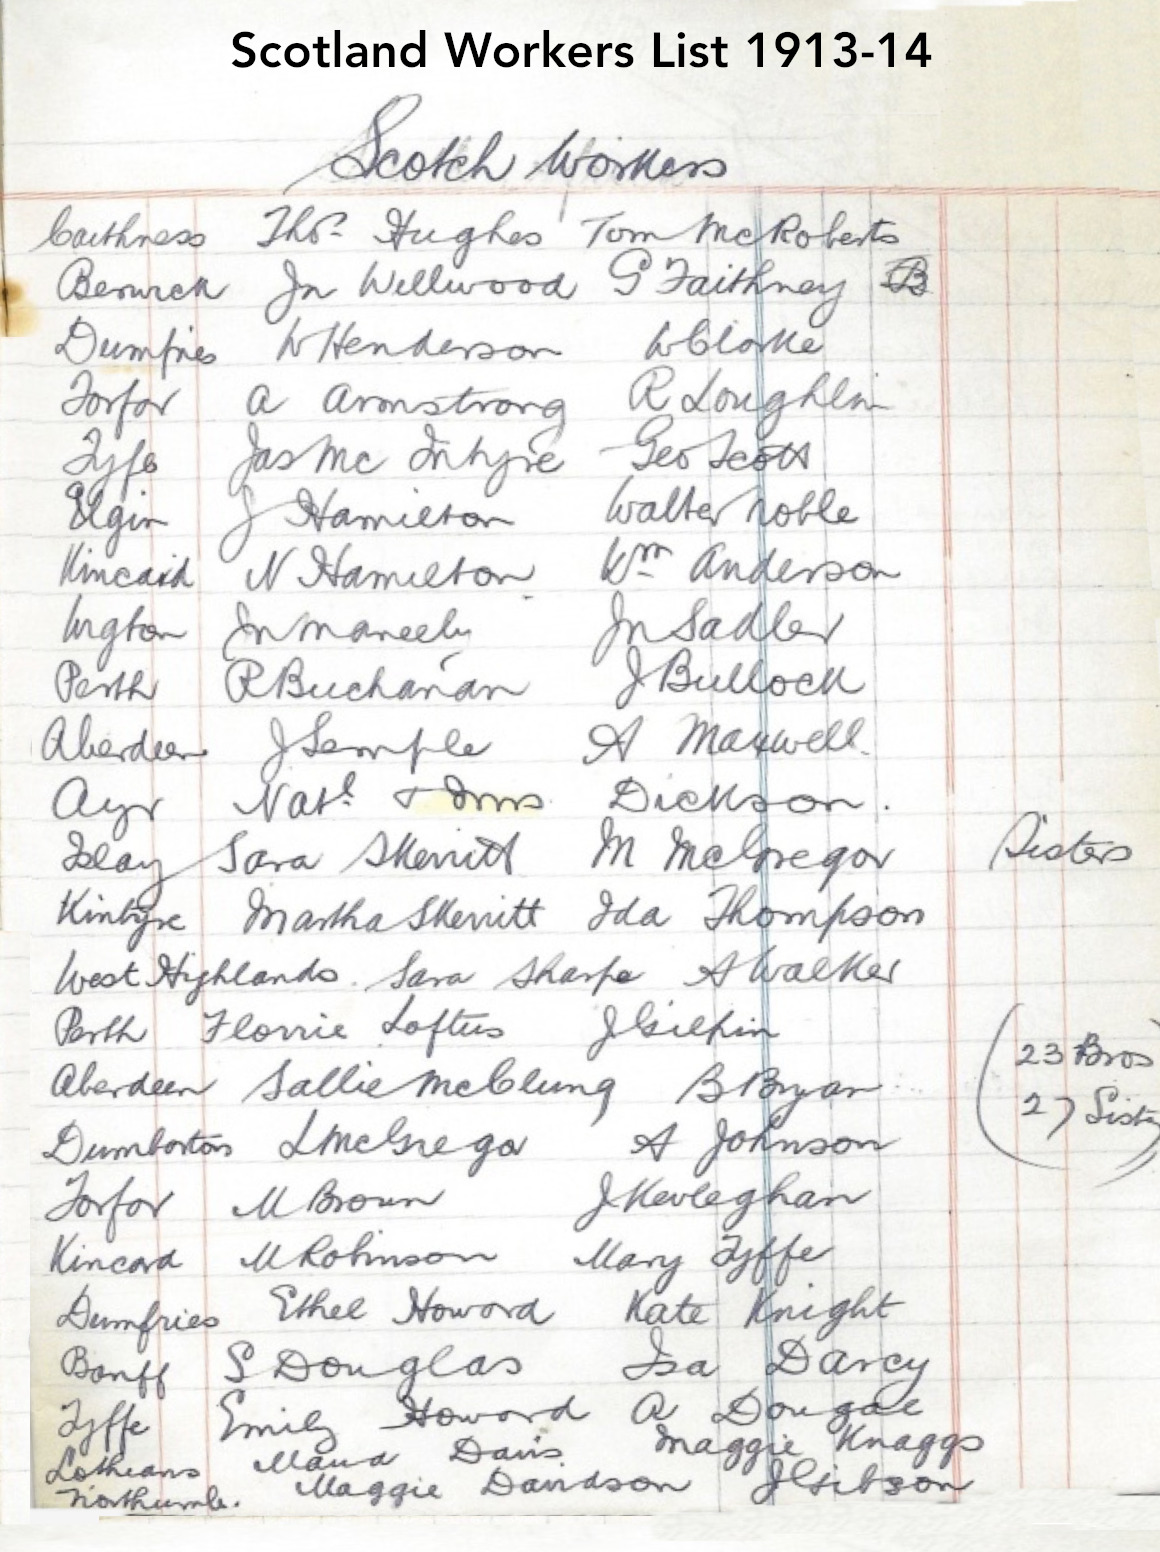 Scotland Workers List 1913-14
Scotch Workers
Caithness Thos. Hughes Tom McRoberts
Berwick Jn Wellwood G Faithney B
Dumfries W Henderson W Clarke
Forfar A Armstrong R Loughlin
Fyfe Jas Mc Intyre Geo Scott
Elgin J Hamilton Walter Noble
Kincaid N Hamilton Wm Anderson
Wigton Jn Maneely Jn Sadler
Perth R Buchanan J Bullock
Aberdeen J Semple A Maxwell.
Ayr Natl. & Dickson.
Islay Sara Skerritt M McGregor Sisters
Kintyre Martha Skerritt Ida Thompson
West Highlands. Sara Sharpe A Walker
Perth Florrie Loftus J Gilpin
23 Bros
Aberdeen Sallie McClung B Bryan
27
Dumbarton L McGregor A Johnson
Forfar M Brown J Kevleghan
Kincard M Robinson Mary Fyffe
Dumfries Ethel Howard Kate Knight
Banff S Douglas Isa Darcy
Fyffe Emily Howard A Dougal
Lothians Maud Davis Maggie Knaggs
Northumb. Maggie Davidson J Gibson